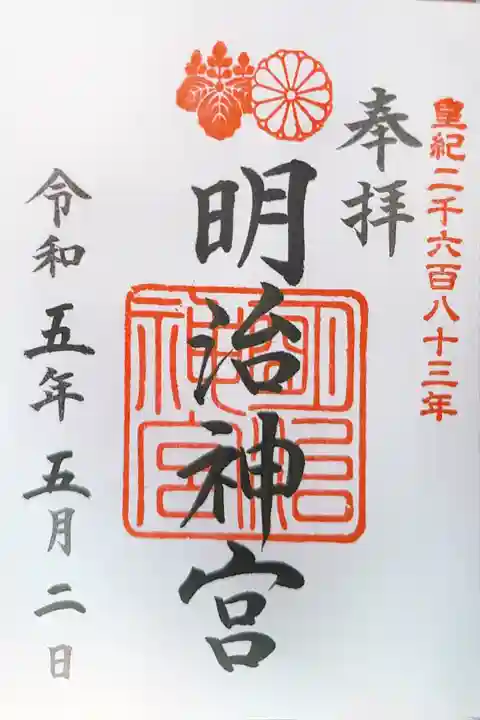 皇紀二千六百八十三年
奉拝
明治神宮
令和五年五月二日